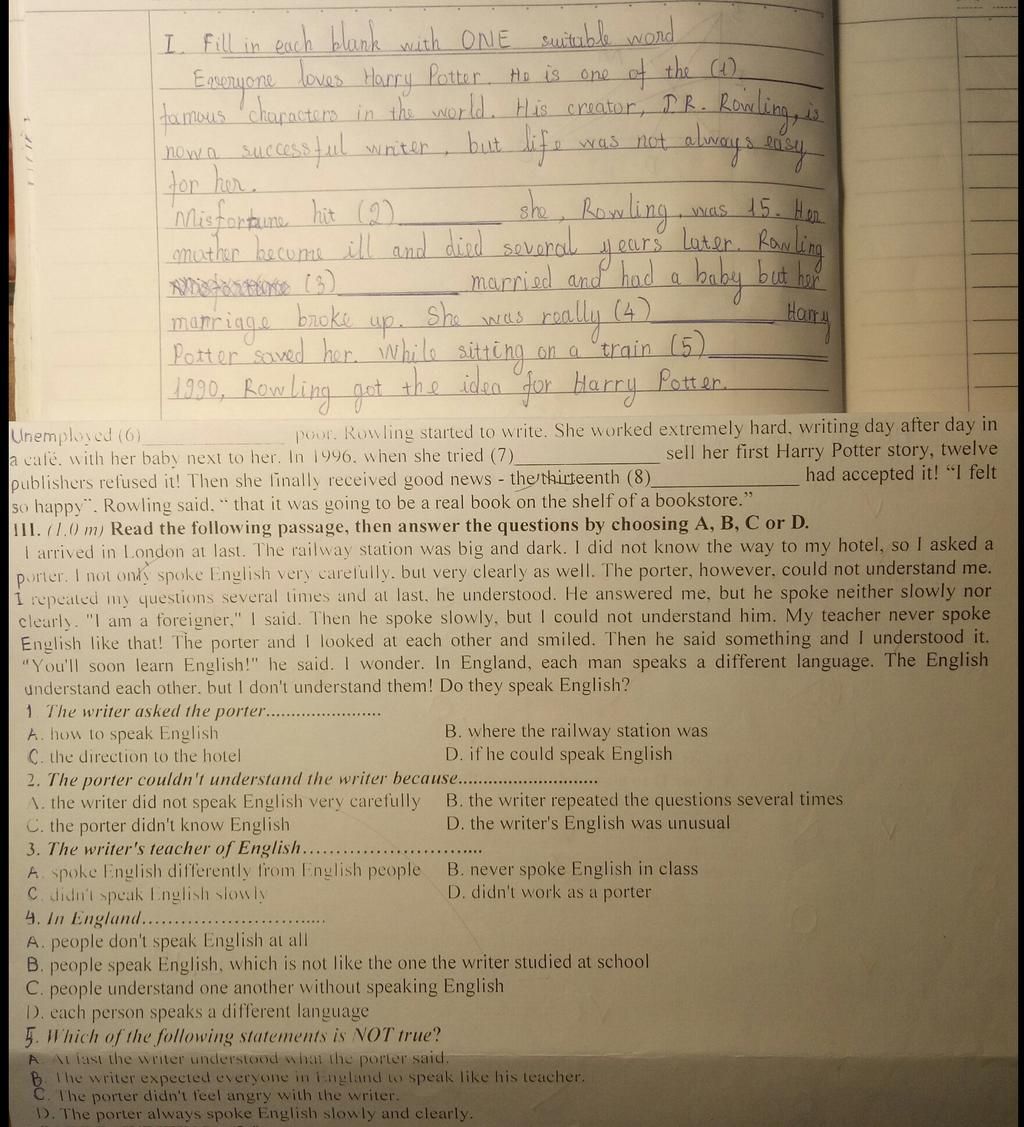 I. Fill in each blank with ONE suitable word
Everyone loves Harry Potter. He is one of the (1)
famous characters in the world. His creator, J.R. Rowling, is
now a successful writer, but life was not always easy
for her.
Misfortune hit (2)__________ she, Rowling, was 15. Her
mother become ill and died several years later. Rowling
(3)__________ married and had a baby but her
marriage broke up. She was really (4)__________ Harry
Potter saved her. While sitting on a train (5)__________
1990, Rowling got the idea for Harry Potter.
Unemployed (6)______________ poor. Rowling started to write. She worked extremely hard, writing day after day in
a café, with her baby next to her. In 1996, when she tried (7)______________ sell her first Harry Potter story, twelve
publishers refused it! Then she finally received good news - the thirteenth (8)______________ had accepted it! "I felt
so happy", Rowling said, " that it was going to be a real book on the shelf of a bookstore."
III. (1.0 m) Read the following passage, then answer the questions by choosing A, B, C or D.
I arrived in London at last. The railway station was big and dark. I did not know the way to my hotel, so I asked a
porter. I not only spoke English very carefully, but very clearly as well. The porter, however, could not understand me.
I repeated my questions several times and at last, he understood. He answered me, but he spoke neither slowly nor
clearly. "I am a foreigner," I said. Then he spoke slowly, but I could not understand him. My teacher never spoke
English like that! The porter and I looked at each other and smiled. Then he said something and I understood it.
"You'll soon learn English!" he said. I wonder. In England, each man speaks a different language. The English
understand each other, but I don't understand them! Do they speak English?
1 The writer asked the porter......................
A. how to speak English B. where the railway station was
C. the direction to the hotel D. if he could speak English
2. The porter couldn't understand the writer because..........................
A. the writer did not speak English very carefully B. the writer repeated the questions several times
C. the porter didn't know English D. the writer's English was unusual
3. The writer's teacher of English..........................
A. spoke English differently from English people B. never spoke English in class
C. didn't speak English slowly D. didn't work as a porter
4. In England..........................
A. people don't speak English at all
B. people speak English, which is not like the one the writer studied at school
C. people understand one another without speaking English
D. each person speaks a different language
5. Which of the following statements is NOT true?
A. At last the writer understood what the porter said.
B. The writer expected everyone in England to speak like his teacher.
C. The porter didn't feel angry with the writer.
D. The porter always spoke English slowly and clearly.